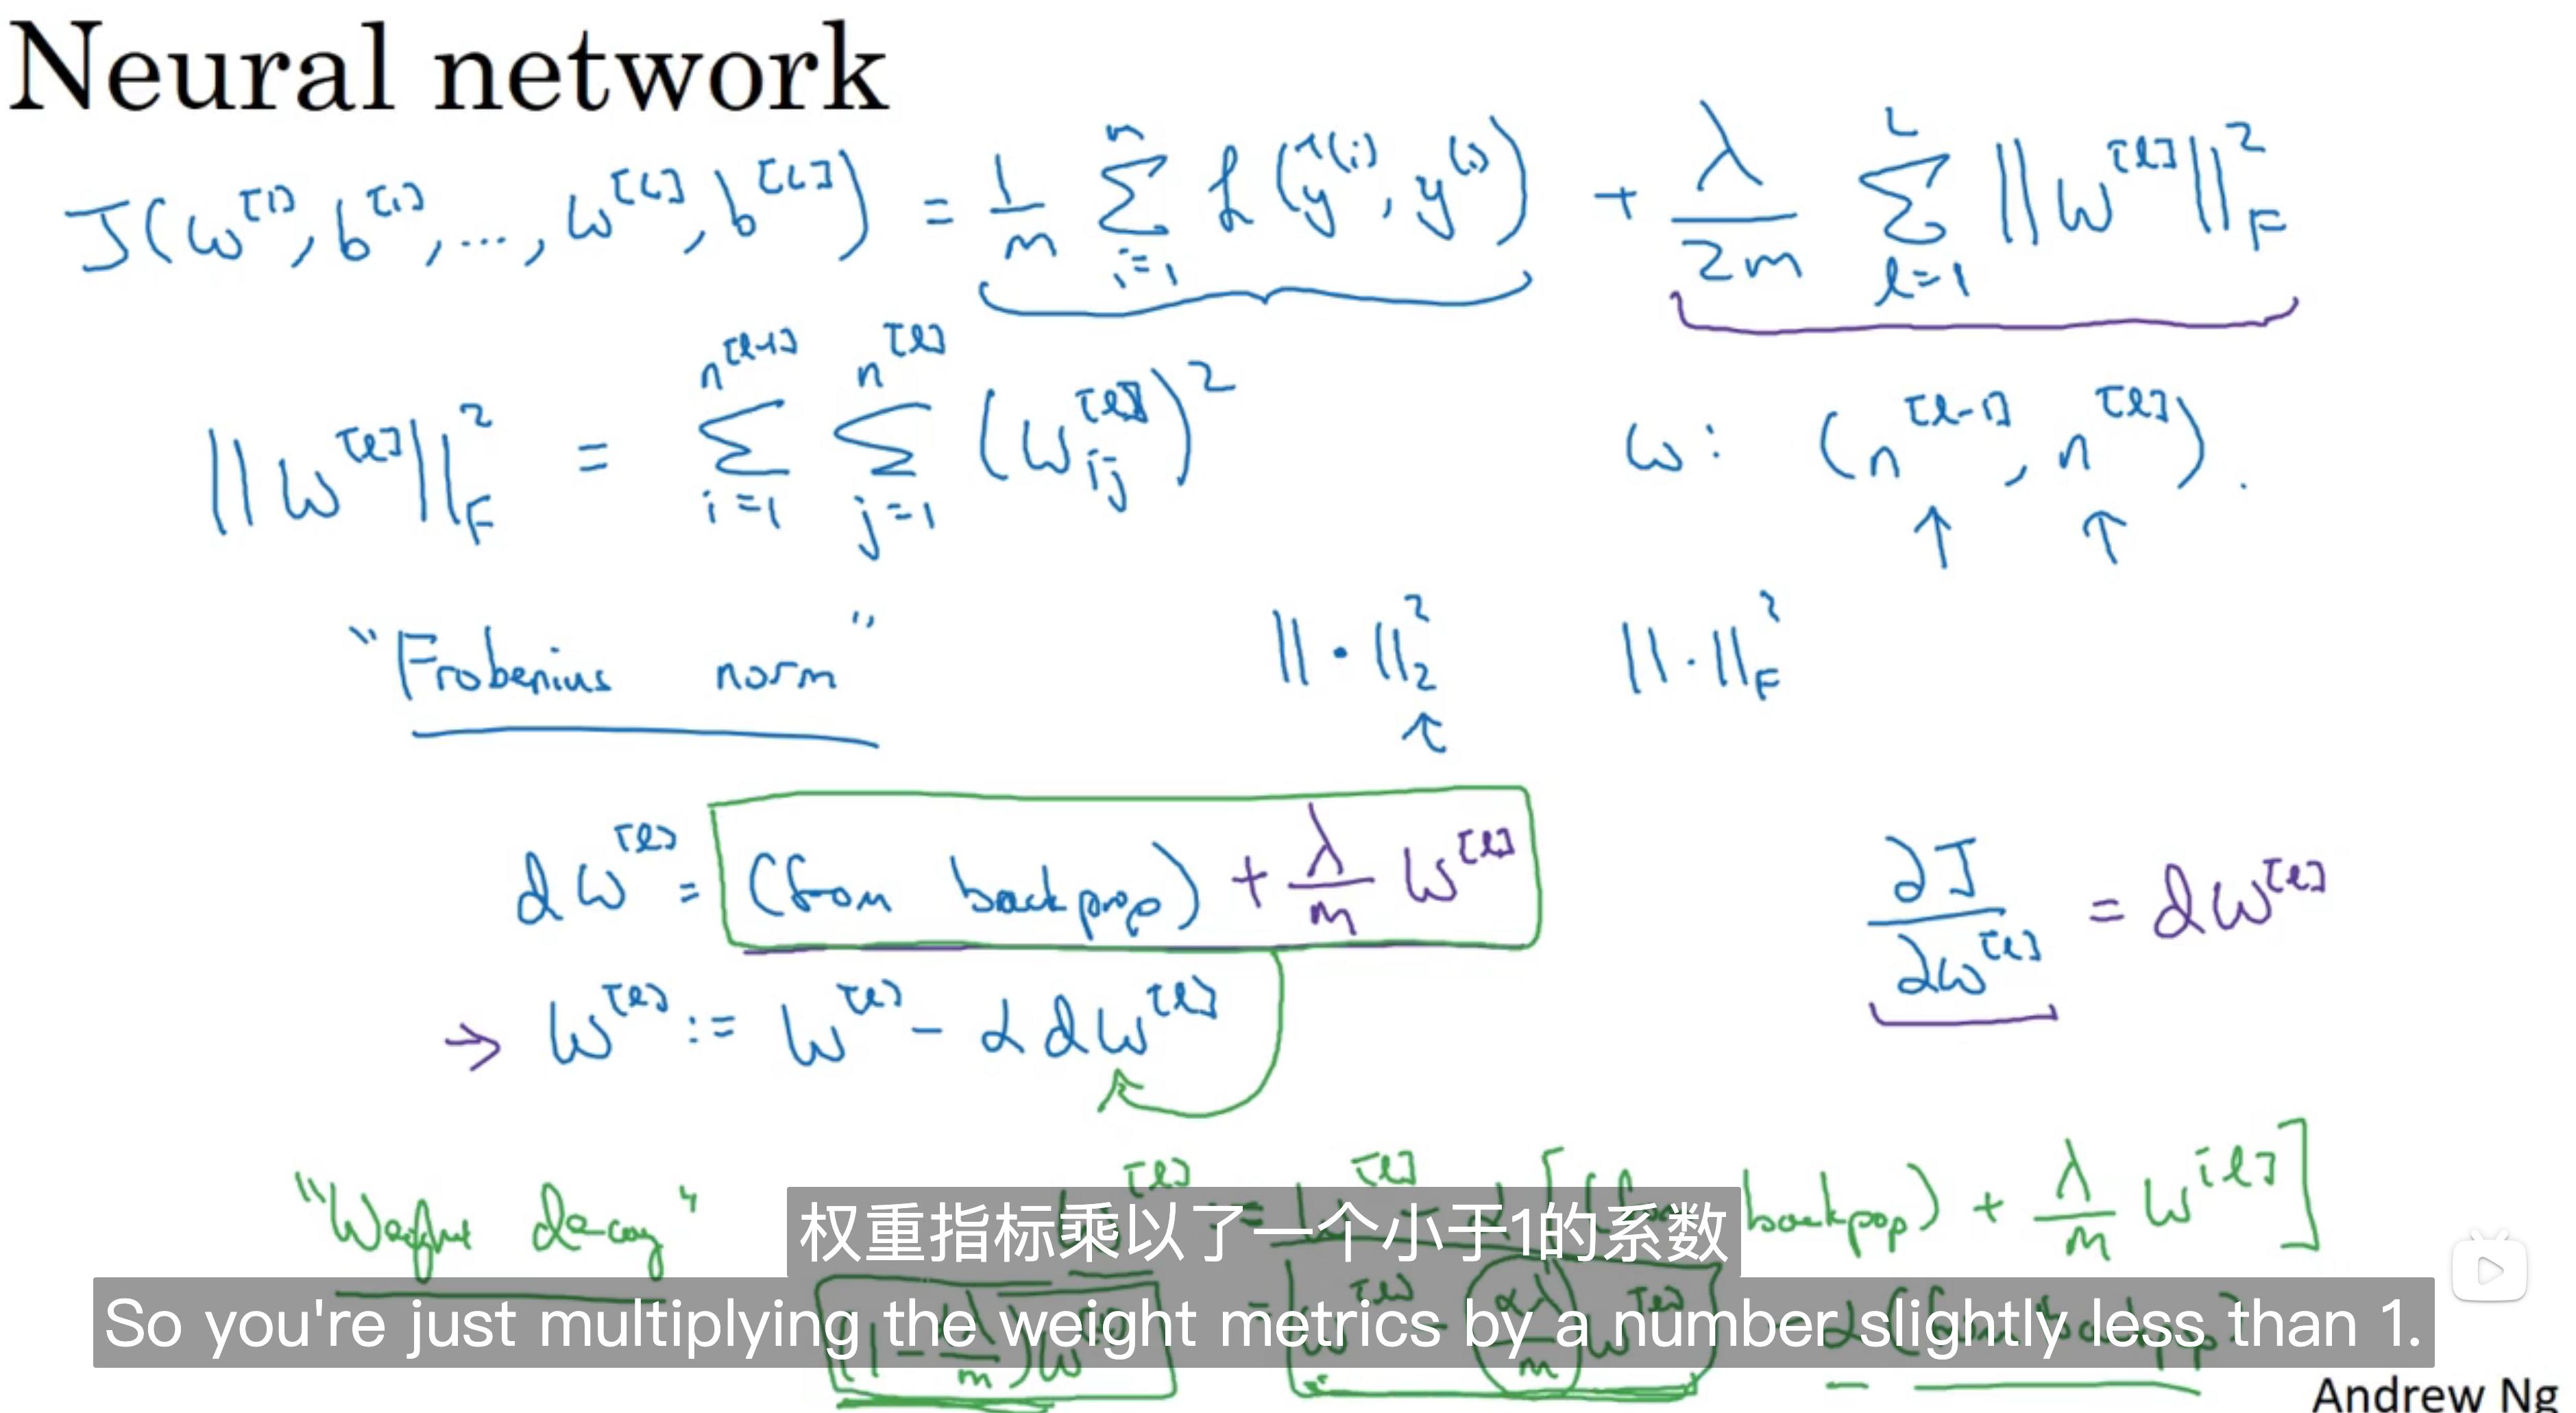 Neural network
J(w^[1], b^[1], ..., w^[L], b^[L]) = 1/m Σ_{i=1}^{m} ℒ(ŷ^(i), y^(i)) + λ/2m Σ_{l=1}^{L} ||w^[l]||_F^2
||w^[l]||_F^2 = Σ_{i=1}^{n^[l-1]} Σ_{j=1}^{n^[l]} (w_ij^[l])^2
w: (n^[l-1], n^[l]).
"Frobenius norm"
||·||_2^2 ||·||_F^2
dw^[l] = (from backprop) + λ/m w^[l]
∂J/∂w^[l] = dw^[l]
→ w^[l] := w^[l] - α dw^[l]
"Weight decay"
w^[l] := w^[l] - α[(from backpop) + λ/m w^[l]]
权重指标乘以了一个小于1的系数
= w^[l] - αλ/m w^[l] - α(from backpop)
(1 - αλ/m) w^[l]
So you're just multiplying the weight metrics by a number slightly less than 1.
Andrew Ng